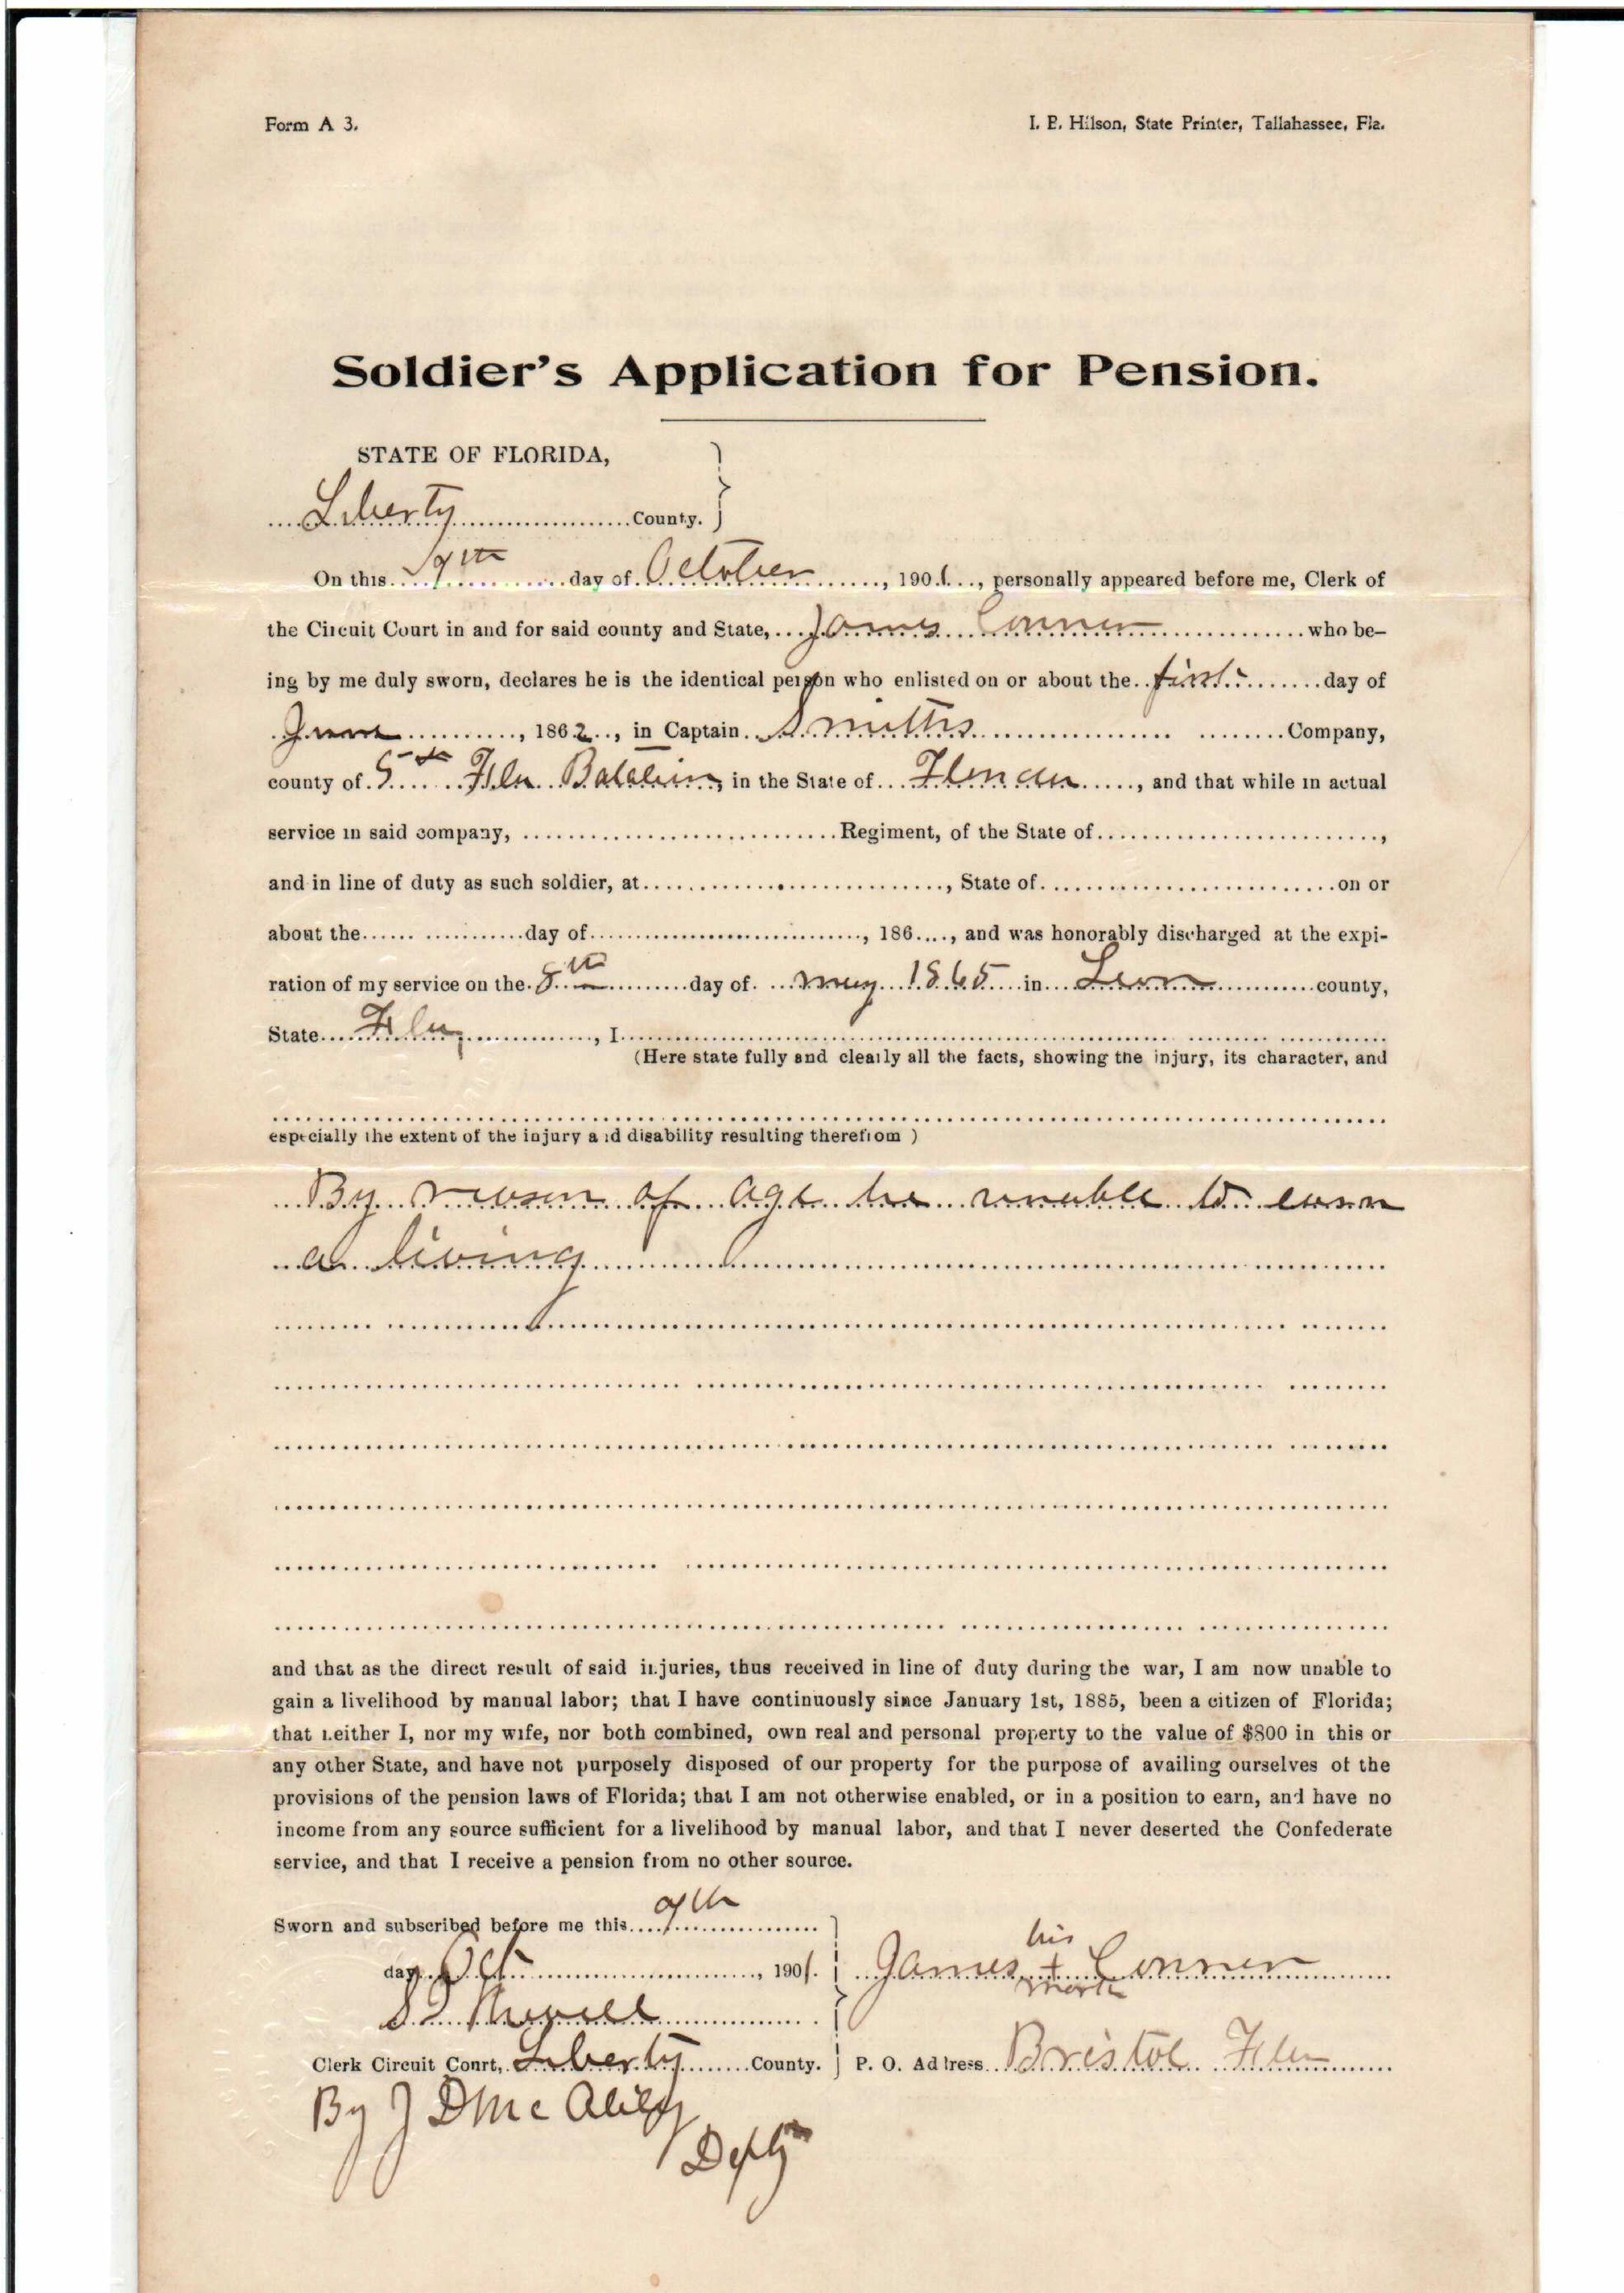 Form A 3.
I. E. Hilson, State Printer, Tallahassee, Fla.
Soldier's Application for Pension.
STATE OF FLORIDA,
Liberty County.
On this 9th day of October, 1901, personally appeared before me, Clerk of
the Circuit Court in and for said county and State, James Conner who be-
ing by me duly sworn, declares he is the identical person who enlisted on or about the first day of
June, 1862, in Captain Smiths Company,
county of 5th Fla Batalion, in the State of Florida, and that while in actual
service in said company, Regiment, of the State of,
and in line of duty as such soldier, at, State of on or
about the day of, 186, and was honorably discharged at the expi-
ration of my service on the 8th day of may 1865 in Leon county,
State Fla, I
(Here state fully and clearly all the facts, showing the injury, its character, and
especially the extent of the injury and disability resulting therefrom )
By reason of age he unable to earn
a living
and that as the direct result of said injuries, thus received in line of duty during the war, I am now unable to
gain a livelihood by manual labor; that I have continuously since January 1st, 1885, been a citizen of Florida;
that neither I, nor my wife, nor both combined, own real and personal property to the value of $800 in this or
any other State, and have not purposely disposed of our property for the purpose of availing ourselves of the
provisions of the pension laws of Florida; that I am not otherwise enabled, or in a position to earn, and have no
income from any source sufficient for a livelihood by manual labor, and that I never deserted the Confederate
service, and that I receive a pension from no other source.
Sworn and subscribed before me this 9th
day Oct, 1901.
James his + mark Conner
Clerk Circuit Court, Liberty County.
P. O. Address Bristol Fla
By J D Mc Aliley
Depty